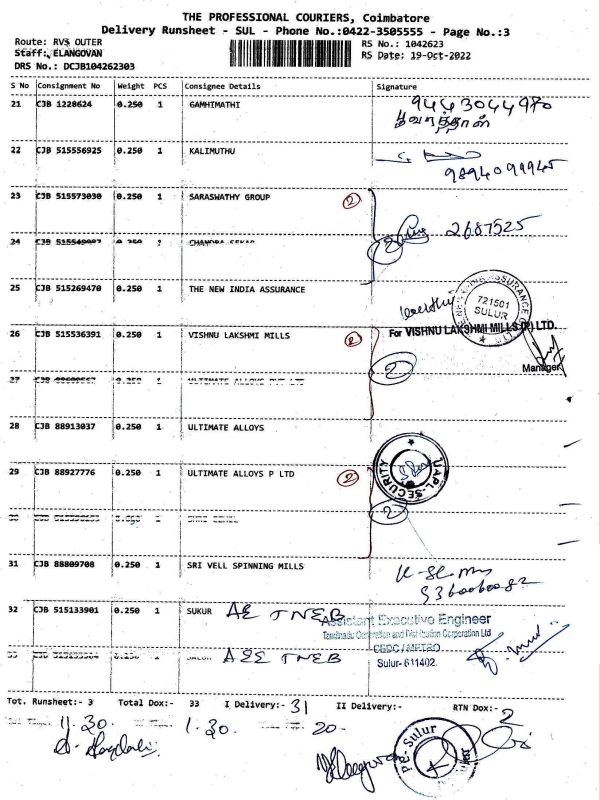 THE PROFESSIONAL COURIERS, Coimbatore
Delivery Runsheet - SUL - Phone No.:0422-3505555 - Page No.:3
Route: RVS OUTER
RS No.: 1042623
Staff: ELANGOVAN
RS Date: 19-Oct-2022
DRS No.: DCJB104262303
S No Consignment No Weight PCS Consignee Details Signature
21 CJB 1228624 0.250 1 GAMHIMATHI
9443044970
22 CJB 515556925 0.250 1 KALIMUTHU
9894099945
23 CJB 515573030 0.250 1 SARASWATHY GROUP 2
2 2687525
24 CJB 0.250 1 CHANDRA SEKAR
25 CJB 515269470 0.250 1 THE NEW INDIA ASSURANCE
721501
SULUR
26 CJB 515536391 0.250 1 VISHNU LAKSHMI MILLS 2
For VISHNU LAKSHMI MILLS (P) LTD.
Manager
2
27 CJB 0.250 1 ULTIMATE ALLOYS PVT LTD
28 CJB 88913037 0.250 1 ULTIMATE ALLOYS
UAPL-SECURITY
29 CJB 88927776 0.250 1 ULTIMATE ALLOYS P LTD 2
2
31 CJB 88809708 0.250 1 SRI VELL SPINNING MILLS
32 CJB 515133901 0.250 1 SUKUR AE TNEB
Assistant Executive Engineer
Tamilnadu Generation and Distribution Corporation Ltd
CEDC / METRO
Sulur- 641402.
AEE TNEB
Tot. Runsheet:- 3 Total Dox:- 33 I Delivery:- 31 II Delivery:- RTN Dox:- 2
11.30 1.30 20
Sulur